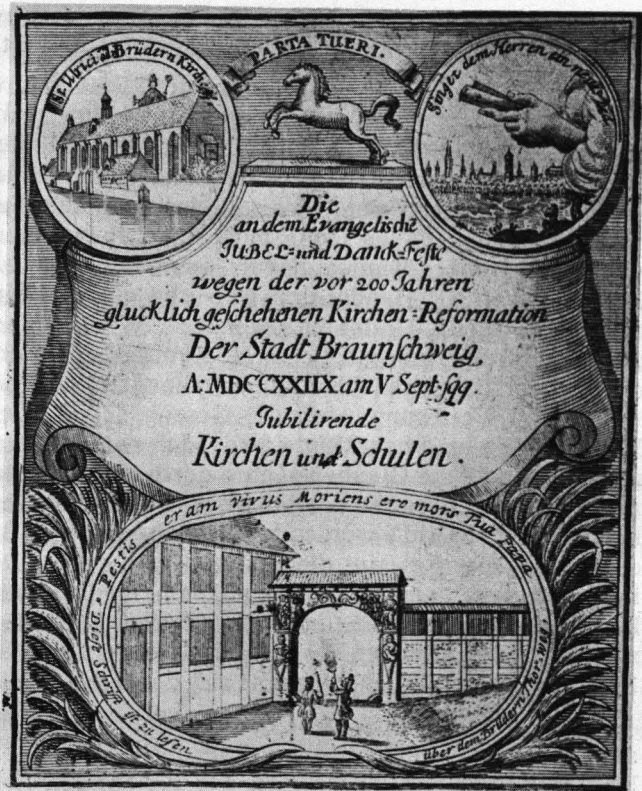 St. Ulrici al. Brüdern Kirche
PARTA TUERI.
Singet dem Herren ein
Die
an dem Evangelische
JUBEL- und Danck-Feste
wegen der vor 200 Jahren
glucklich geschehenen Kirchen-Reformation
Der Stadt Braunschweig
A: MDCCXXIIX am V Sept. sqq.
Jubilirende
Kirchen und Schulen.
Pestis eram vivus Moriens ero mors Tua Papa
Diese Schrift ist zu lesen
über dem Brüdern Thor.